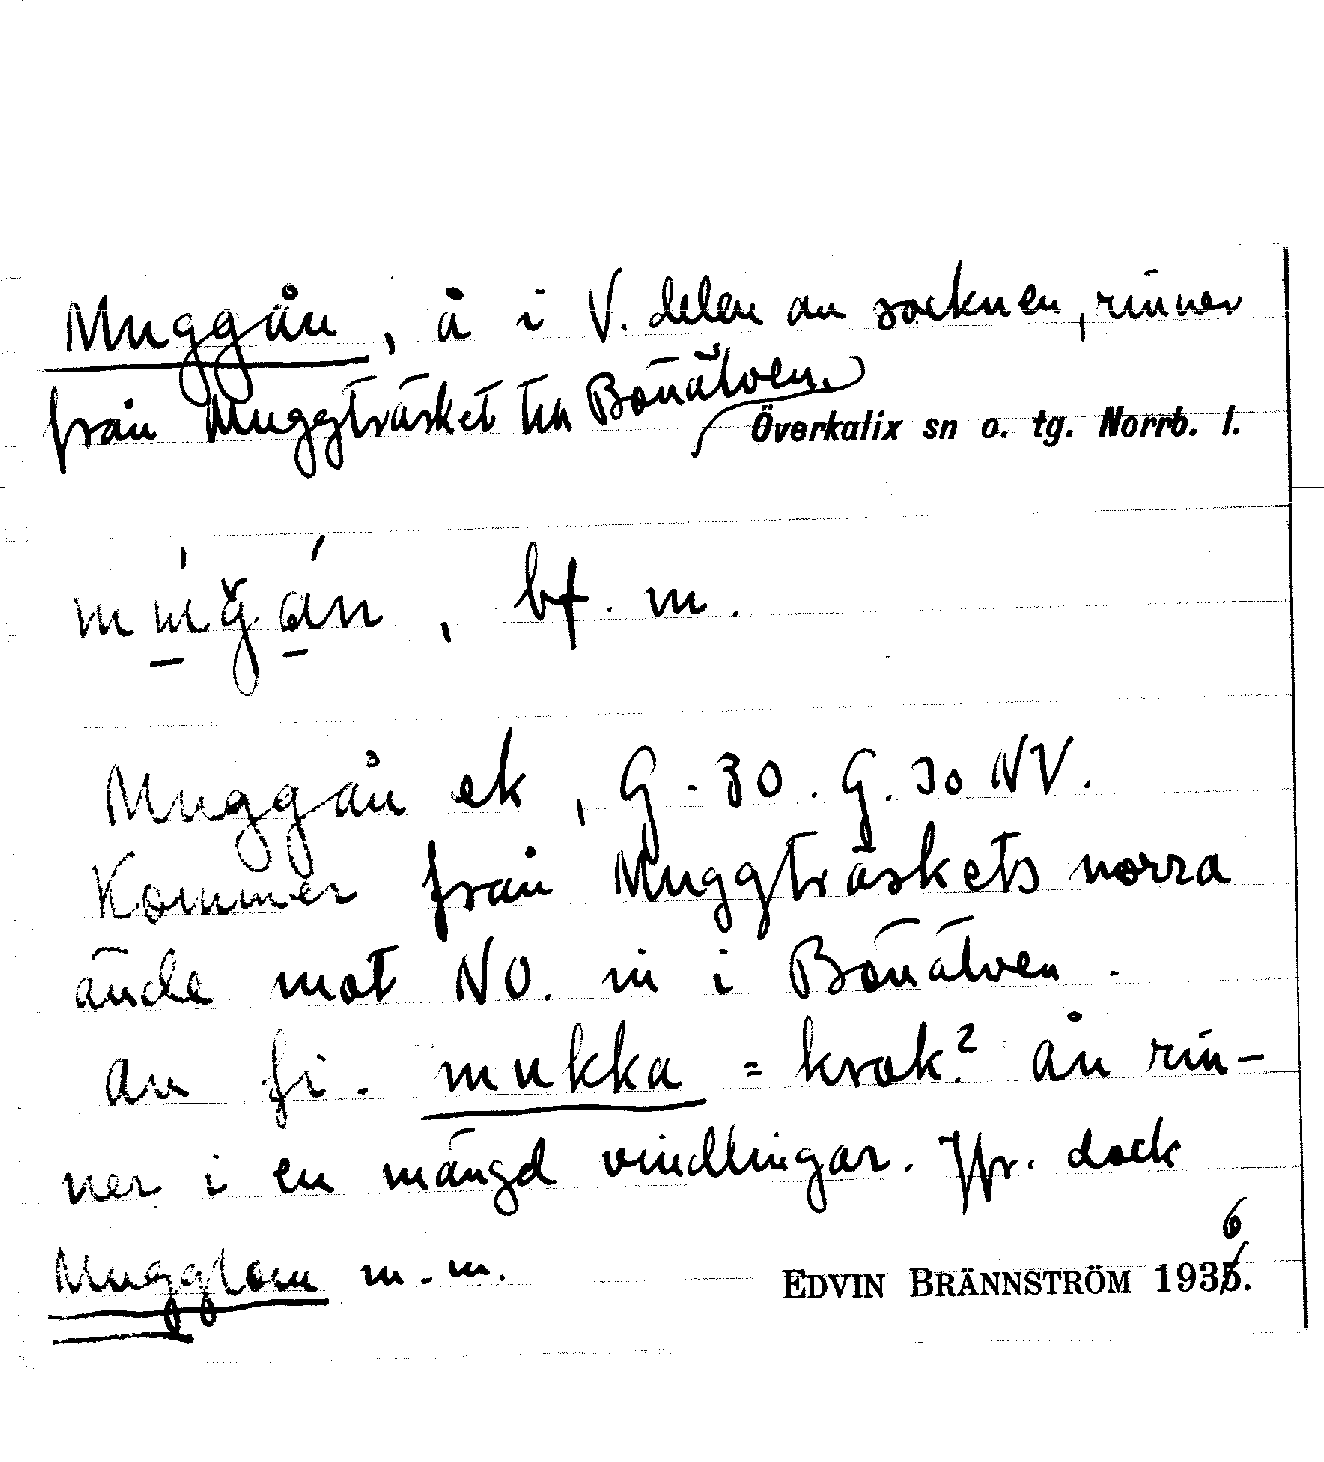 Muggån, å i V. delen av socknen, rinner
från Muggträsket till Bönälven.
Överkalix sn o. tg. Norrb. l.
bf. m.
Muggån ek, G. 30. G. 30 NV.
Kommer från Muggträskets norra
ände mot NO. in i Bönälven.
av fi. mukka = krok? ån rin-
ner i en mängd vindlingar. Jfr. dock
Mugglom m.m.
EDVIN BRÄNNSTRÖM 1936.